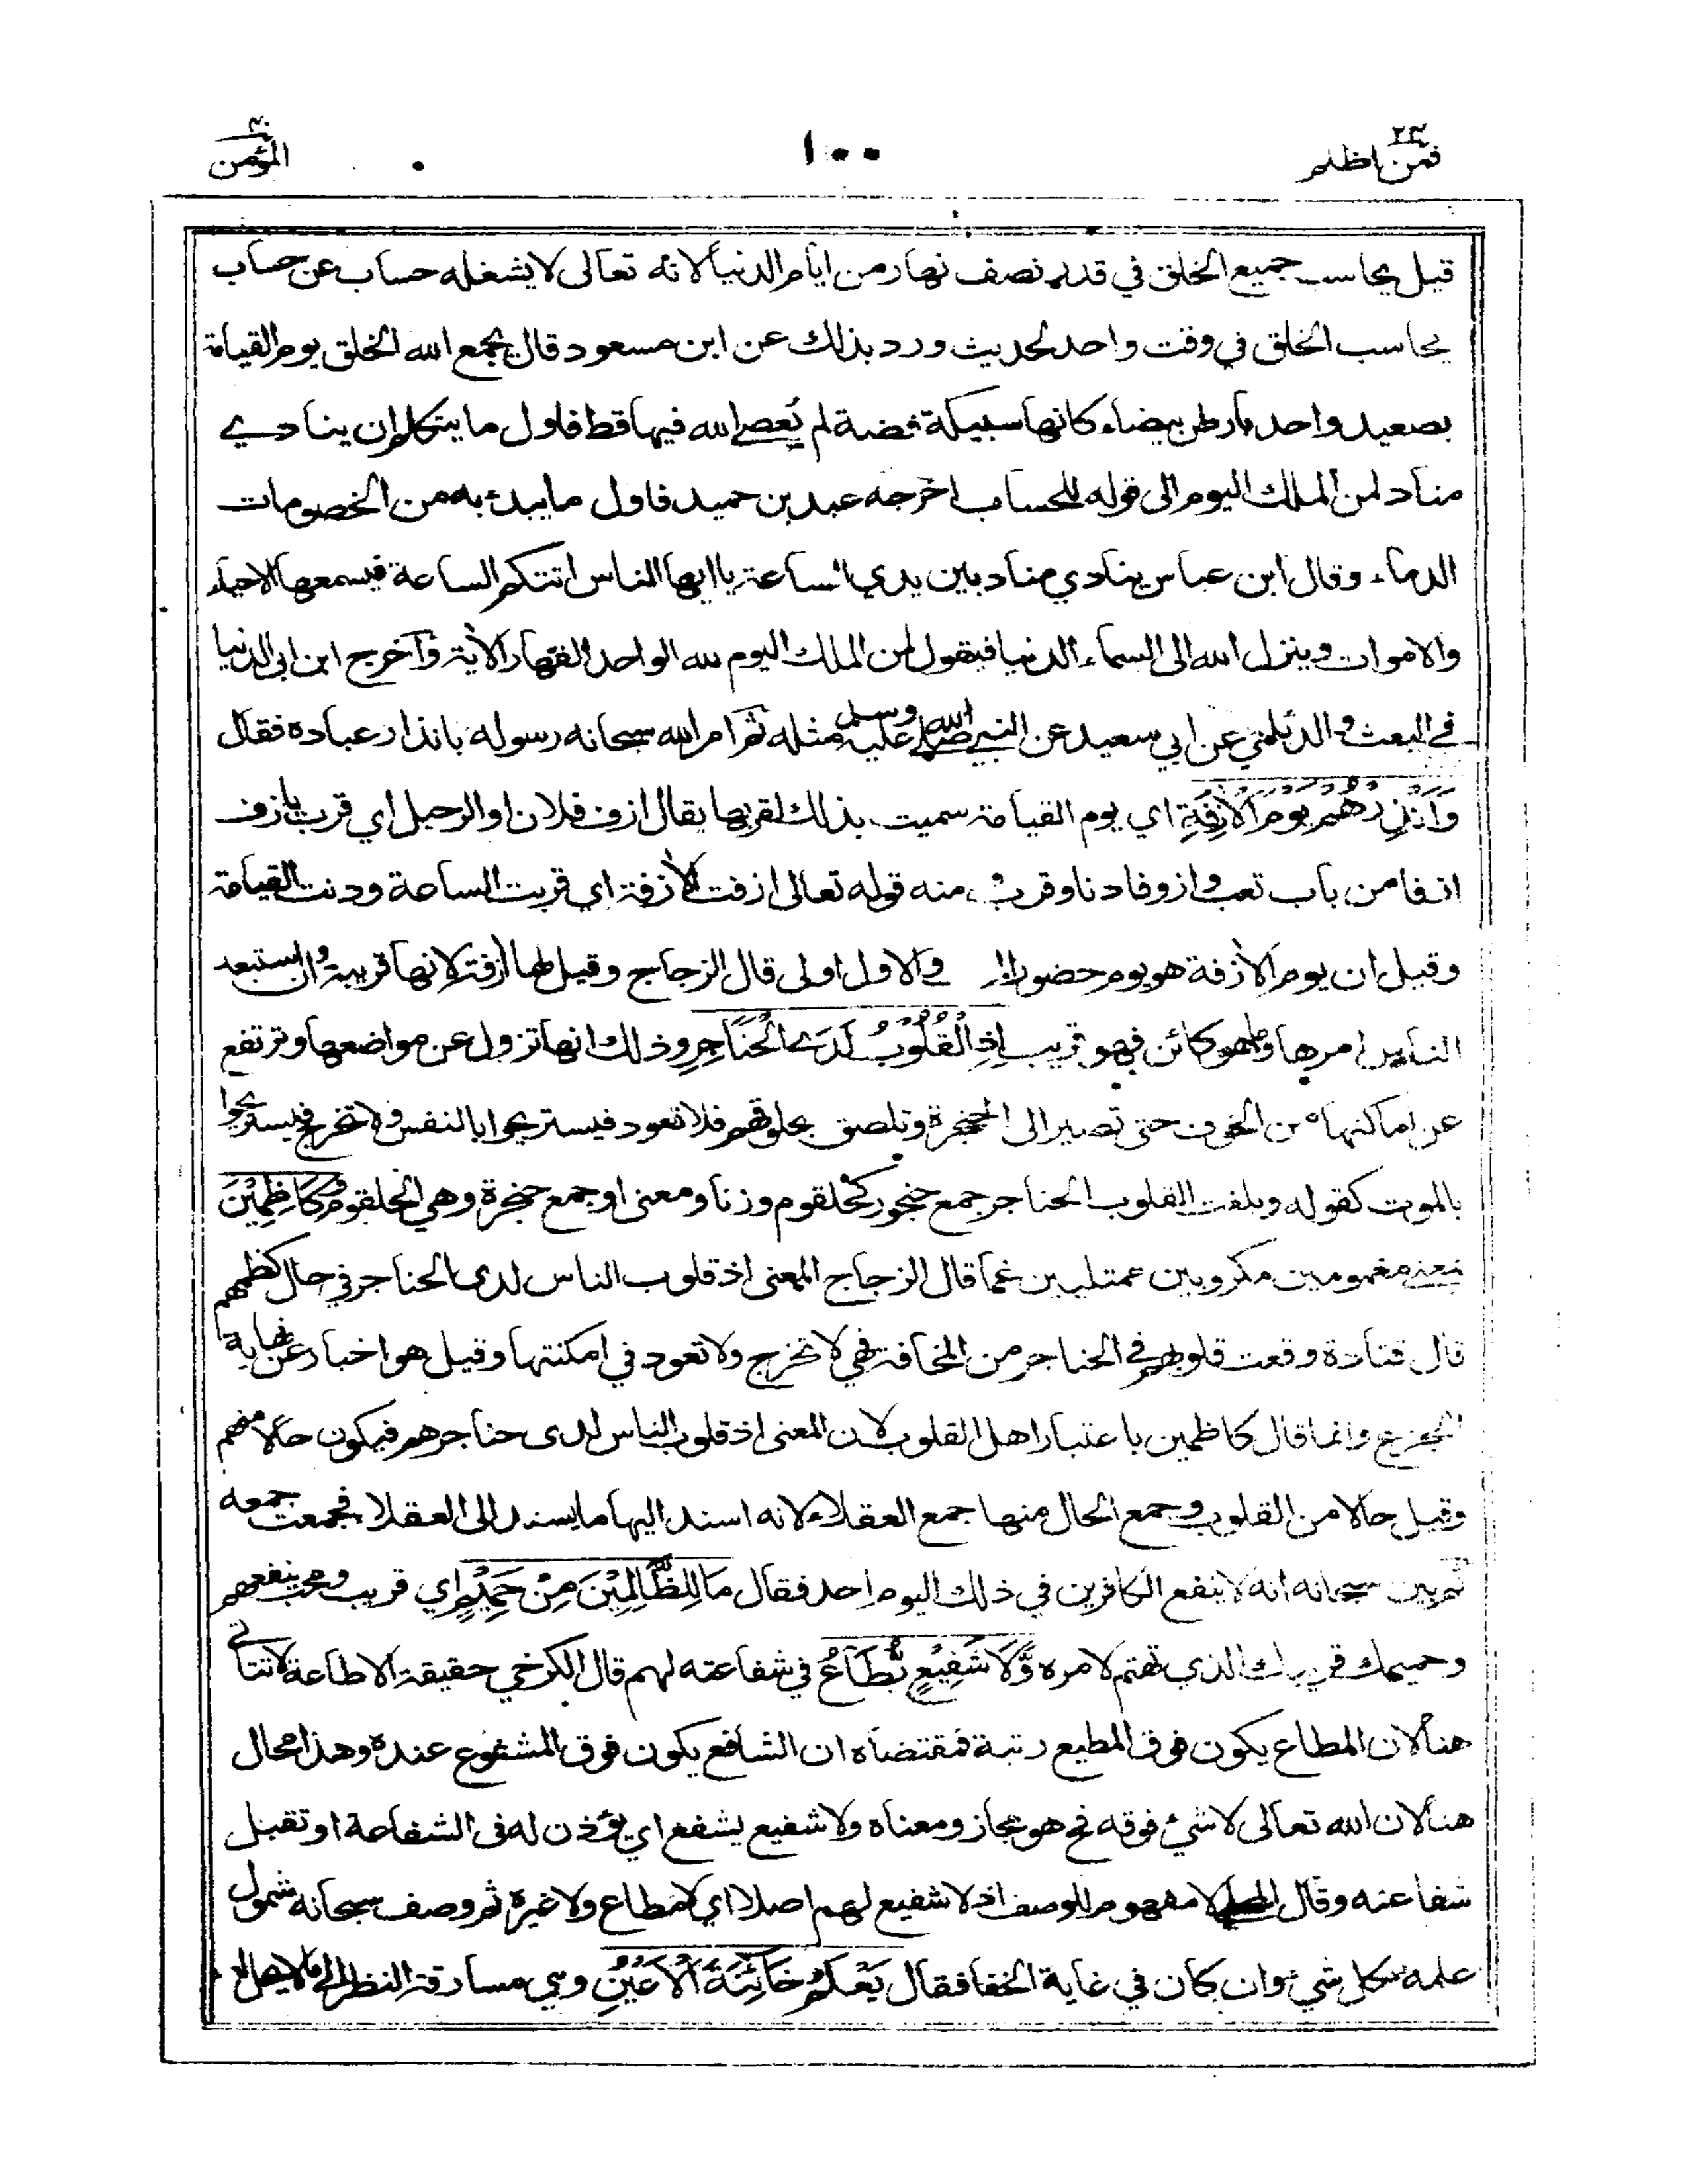 فمن اظلم ٢٤
١٠٠
المؤمن ٤٠
قيل يحاسب جميع الخلق في قدر نصف نهار من ايام الدنيا لانه تعالى لا يشغله حساب عن حساب
يحاسب الخلق في وقت واحد لحديث ورد بذلك عن ابن مسعود قال يجمع الله الخلق يوم القيامة
بصعيد واحد بارض بيضاء كانها سبيكة فضة لم يعص الله فيها قط فاول ما يتكلم ان ينادي
مناد لمن الملك اليوم الى قوله للحساب اخرجه عبد بن حميد فاول ما يبدء به من الخصومات
الدماء وقال ابن عباس ينادي مناد بين يدي الساعة يا ايها الناس اتتكم الساعة فيسمعها الاحياء
والاموات وينزل الله الى السماء الدنيا فيقول لمن الملك اليوم لله الواحد القهار الآية وأخرج ابن ابي الدنيا
في البعث والديلمي عن ابي سعيد عن النبي صلى الله عليه وسلم مثله ثم امر الله سبحانه رسوله بانذار عباده فقال
وَاَنْذِرْهُمْ يَوْمَ الْآزِفَةِ اي يوم القيامة سميت بذلك لقربها يقال ازف فلان او الرحيل اي قرب يازف
ازفا من باب تعب وازوفا دنا وقرب ومنه قوله تعالى ازفت الآزفة اي قربت الساعة ودنت القيامة
وقيل ان يوم الآزفة هو يوم حضور والاول اولى قال الزجاج وقيل لها آزفة لانها قريبة وان استبعد
الناس امرها وما هو كائن فهو قريب اِذِ الْقُلُوْبُ لَدَى الْحَنَاجِرِ وذلك انها تزول عن مواضعها وترتفع
عن اماكنها من الخوف حتى تصير الى الحنجرة وتلصق بحلوقهم فلا تعود فيستريحوا بالنفس ولا تخرج فيستريحوا
بالموت كقوله وبلغت القلوب الحناجر جمع حنجور كحلقوم وزنا ومعنى او جمع حنجرة وهي الحلقوم كَاظِمِيْنَ
يعني مغمومين مكروبين ممتلئين غما قال الزجاج المعنى اذ قلوب الناس لدى الحناجر في حال كظمهم
قال قتادة وقعت قلوبهم في الحناجر من المخافة فهي لا تخرج ولا تعود في امكنتها وقيل هو اخبار عن نهاية
الجزع وانما قال كاظمين باعتبار اهل القلوب لان المعنى اذ قلوب الناس لدى حناجرهم فيكون حالا منهم
وقيل حالا من القلوب وجمع الحال منها جمع العقلاء لانه اسند اليها ما يسند الى العقلاء فجمعت جمعه
ثم بين سبحانه انه لا ينفع الكافرين في ذلك اليوم احد فقال مَا لِلظَّالِمِيْنَ مِنْ حَمِيْمٍ اي قريب ومحب ينفعهم
وحميمك قريبك الذي تهتم لامره وَّلَا شَفِيْعٍ يُّطَاعُ في شفاعته لهم قال الكرخي حقيقة الاطاعة لا تتاتى
هنا لان المطاع يكون فوق المطيع رتبة فمقتضاه ان الشافع يكون فوق المشفوع عنده وهذا محال
هنا لان الله تعالى لا شيء فوقه فح هو مجاز ومعناه ولا شفيع يشفع اي يؤذن له في الشفاعة او تقبل
شفاعته وقال المحلي لا مفهوم للوصف اذ لا شفيع لهم اصلا اي لا مطاع ولا غيره ثم وصف سبحانه شمول
علمه بكل شيء وان كان في غاية الخفا فقال يَعْلَمُ خَائِنَةَ الْاَعْيُنِ وهي مسارقة النظر الى ما لا يحل